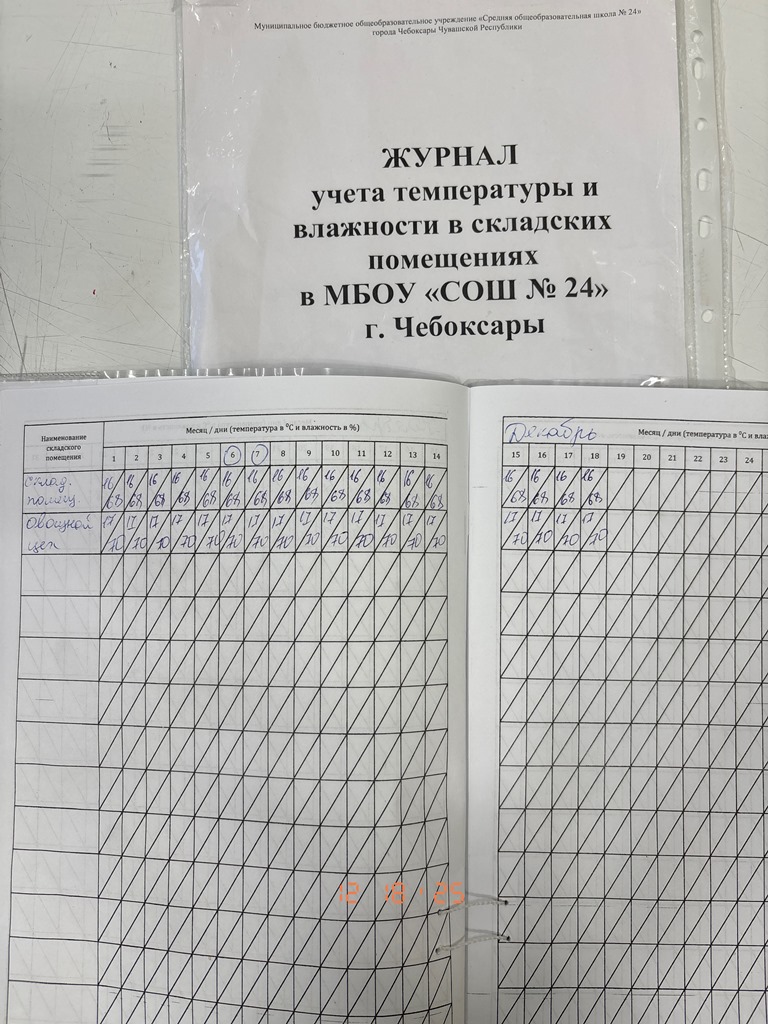 Муниципальное бюджетное общеобразовательное учреждение «Средняя общеобразовательная школа № 24»
города Чебоксары Чувашской Республики
ЖУРНАЛ
учета температуры и
влажности в складских
помещениях
в МБОУ «СОШ № 24»
г. Чебоксары
Наименование складского помещения
Месяц / дни (температура в ⁰С и влажность в %)
1 2 3 4 5 6 7 8 9 10 11 12 13 14
Склад. 16 16 16 16 16 16 16 16 16 16 16 16 16 16
помещ. 68 68 68 68 68 68 68 68 68 68 68 68 68 68
Овощной 17 17 17 17 17 17 17 17 17 17 17 17 17 17
цех 70 70 70 70 70 70 70 70 70 70 70 70 70 70
Декабрь Месяц / дни (температура в ⁰С и вла
15 16 17 18 19 20 21 22 23 24
16 16 16 16
68 68 68 68
17 17 17 17
70 70 70 70
12 18 '25